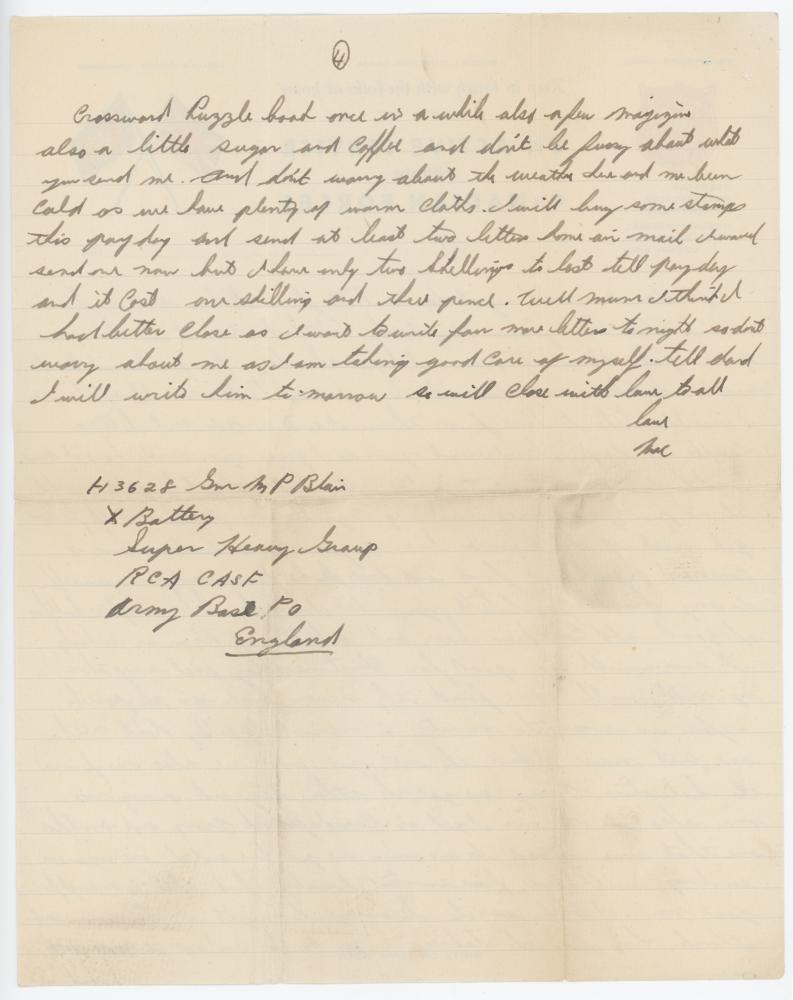 4
Crossword Puzzle book once in a while also a few magizins
also a little sugar and Coffee and don't be fussy about what
you send me. and dont worry about the weather here and me been
Cold as we have plenty of warm Cloths. I will buy some stamps
this pay day and send at least two letters home air mail I would
send one now but I have only two Shellings to last tell pay day
and it Cost one shilling and three pence. Well mum I think I
had better Close as I want to write four more letters to night so dont
worry about me as I am takeing good Care of myself. tell dad
I will write him to-morrow so will Close with love to all
love
Mac
H3628 Gnr M P Blair
X Battery
Super Heavy Group
RCA CASF
Army Base PO
England